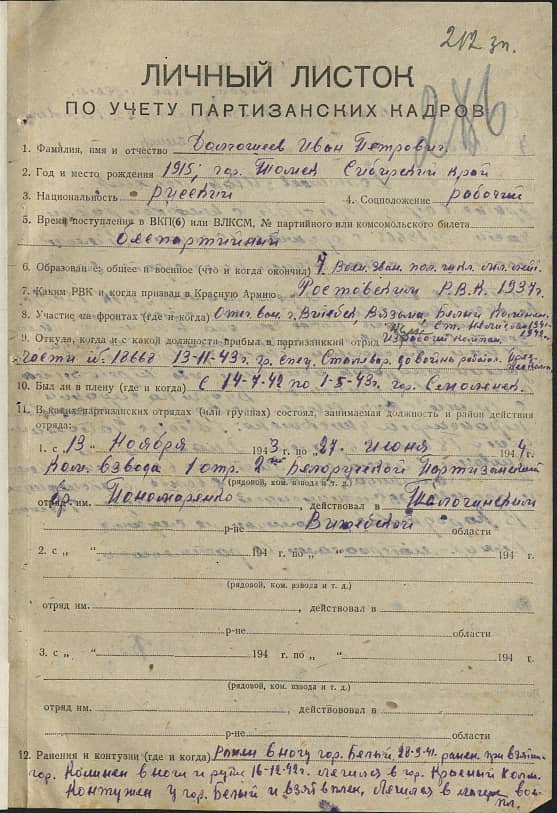 212 зп.
286
ЛИЧНЫЙ ЛИСТОК
ПО УЧЕТУ ПАРТИЗАНСКИХ КАДРОВ
1. Фамилия, имя и отчество Иван Петрович
2. Год и место рождения 1915, гор. Томск Сибирский край
3. Национальность русский 4. Соцположение рабочий
5. Время поступления в ВКП(б) или ВЛКСМ, № партийного или комсомольского билета
беспартийный
6. Образование: общее и военное (что и когда окончил) 7
7. Каким РВК и когда призван в Красную Армию Ростовским Р.В.К. 1937г.
8. Участие на фронтах (где и когда) Витебск, Вязьма, Белый
9. Откуда, когда и с какой должности прибыл в партизанский отряд
части № 18668 13-11-43г. до войны
10. Был ли в плену (где и когда) С 14-7-42 по 1-5-43г. гор. Смоленск.
11. В каких партизанских отрядах (или группах) состоял, занимаемая должность и район действия
отряда:
1. с „13 “ Ноября 1943 г. по „27 “ июня 1944 г.
Ком. взвода 1 отр. 2ой Белорусской Партизанской
(рядовой, ком. взвода и т. д.)
бр. отряд им. Пономаренко, действовал в Толочинском
р-не Витебской области
2. с „ “ 194 г. по „ “ 194 г.
(рядовой, ком. взвода и т. д.)
отряд им. , действовал в
р-не области
3. с „ “ 194 г. по „ “ 194 г.
(рядовой, ком. взвода и т. д.)
отряд им. , действовал в
р-не области
12. Ранения и контузии (где и когда) Ранен в ногу гор. Белый, 28-9-41. ранен при взятии
гор. Калинин в ноги и руки 16-12-42г. Лечился в гор. Красный Холм.
Контужен у гор. Белый и взят в плен, Лечился в лагере воен
пл.